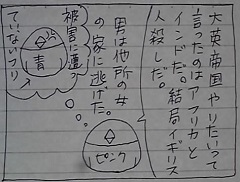 大英帝国やりたいって
言ったのはアフリカと
インドだ。結局イギリス
人殺しだ。
男は他所の女
の家に逃げた。
被害に遭っ
ていないフリ
青
ピンク